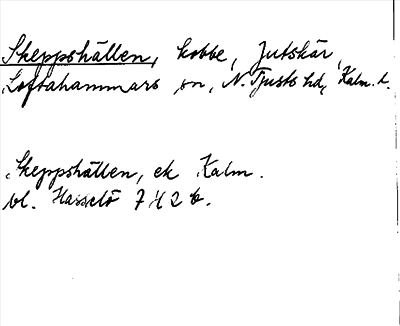 Skeppshällen, kobbe, Jutskär,
Loftahammars sn, N. Tjusts hd, Kalm. l.
Skeppshällen, ek Kalm.
bl. Hasselö 7 H 2 b.